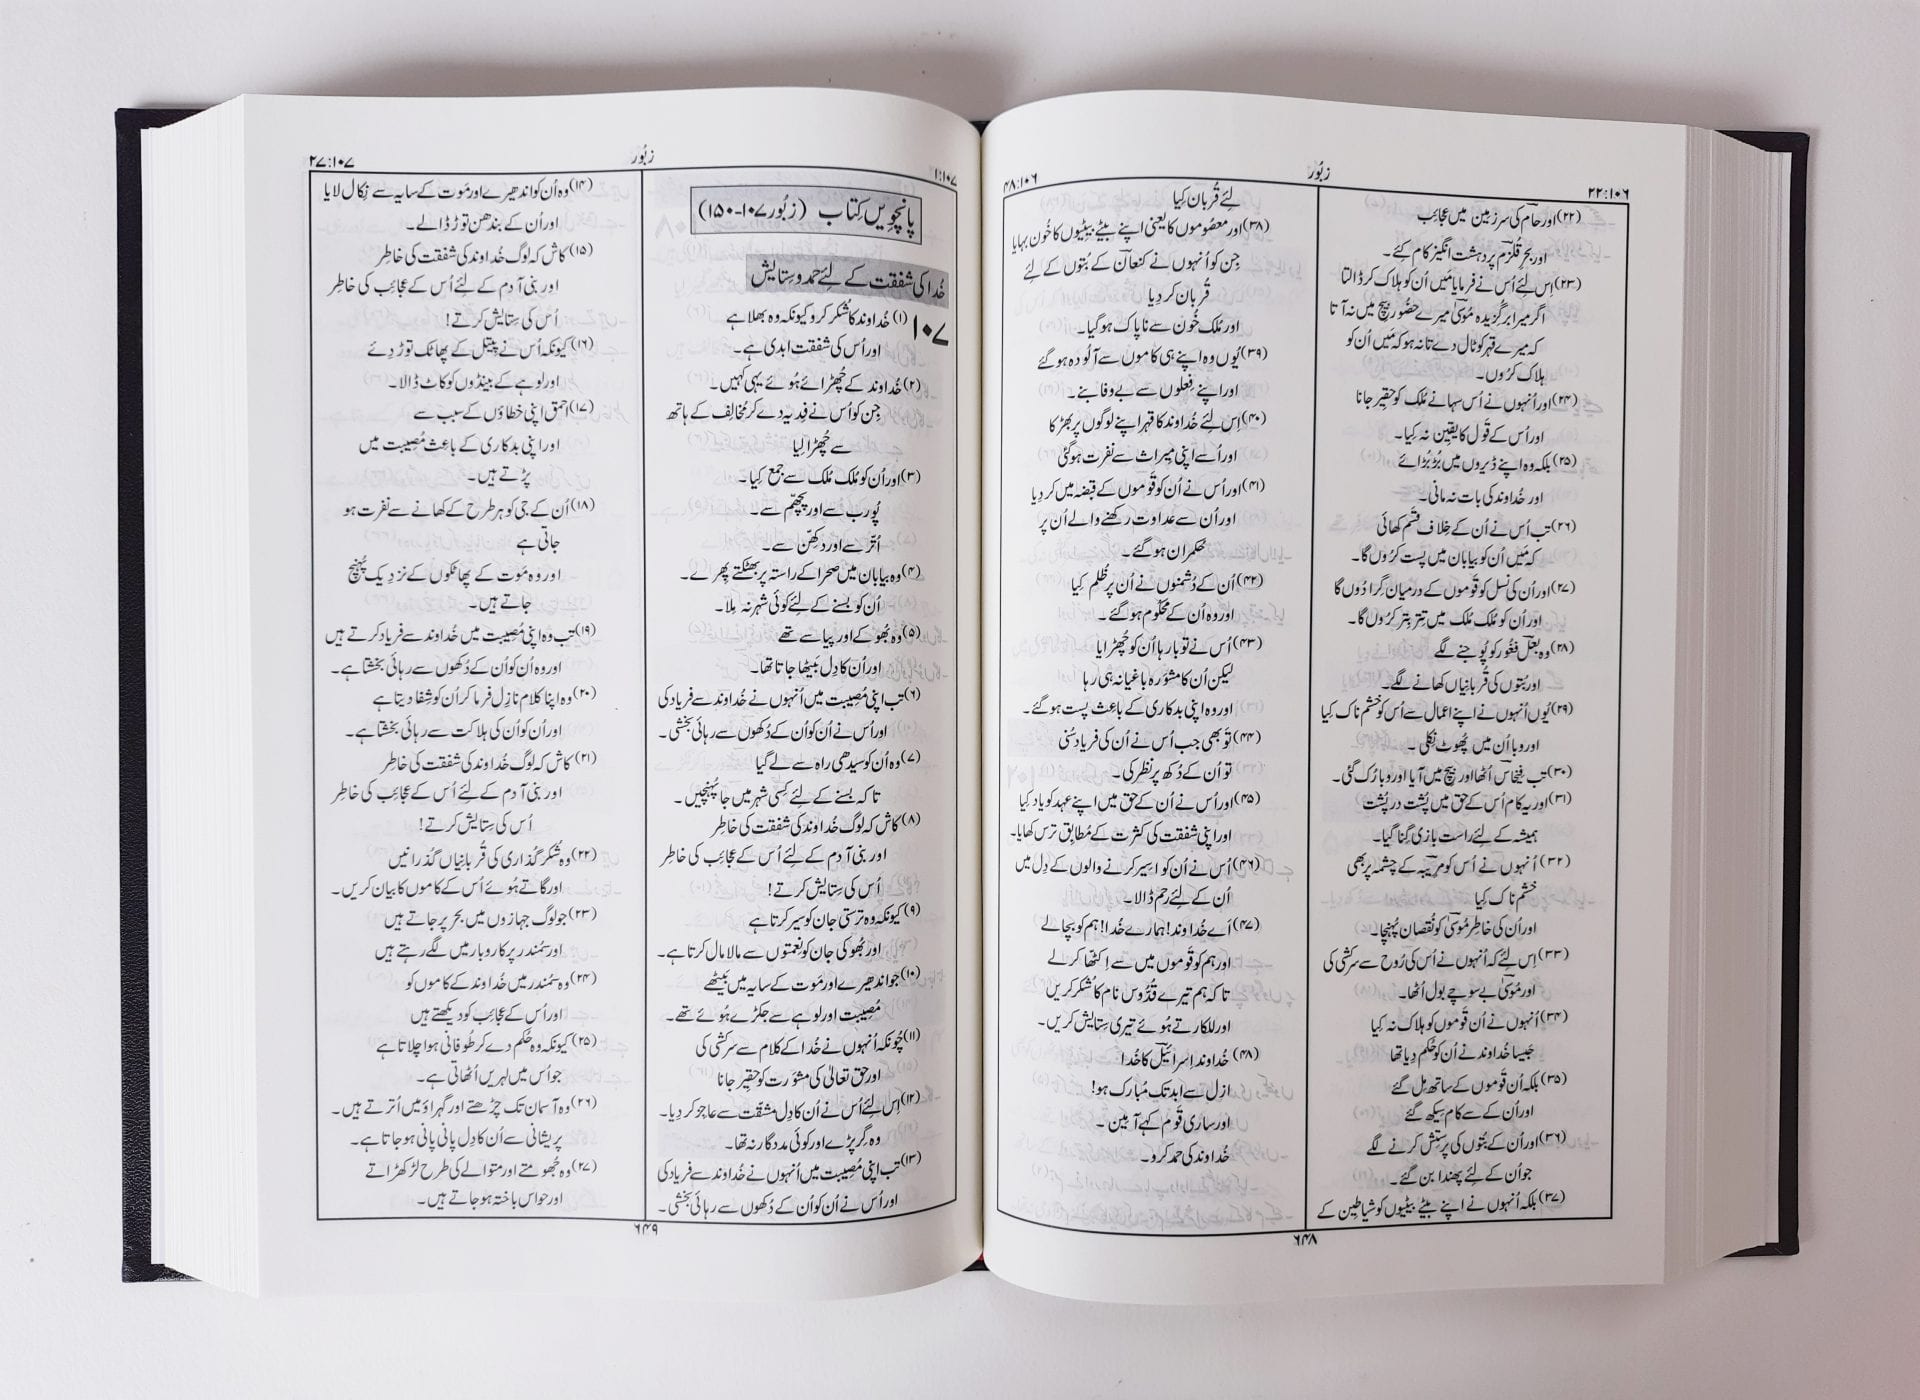 ۲۲:۱۰۶
زبُور
۴۸:۱۰۶
(۲۲) اور حام کی سرزمین میں عجائِب
اور بحرِ قلزم پر دہشت انگیز کام کئے۔
(۲۳) اِس لِئے اُس نے فرمایا مَیں اُن کو ہلاک کر ڈالتا
اگر میرا برگُزیدہ مُوسیٰ میرے حضُور بیچ میں نہ آتا
کہ میرے قہر کو ٹال دے تا نہ ہو کہ مَیں اُن کو
ہلاک کرُوں۔
(۲۴) اور اُنہوں نے اُس سہانے مُلک کو حقِیر جانا
اور اُس کے قَول کا یقِین نہ کِیا۔
(۲۵) بلکہ وہ اپنے ڈیروں میں بُڑبُڑائے
اور خُداوند کی بات نہ مانی۔
(۲۶) تب اُس نے اُن کے خِلاف قَسم کھائی
کہ مَیں اُن کو بیابان میں پست کرُوں گا۔
(۲۷) اور اُن کی نسل کو قَوموں کے درمیان گِرا دُوں گا
اور اُن کو مُلک مُلک میں تِتّر بِتّر کرُوں گا۔
(۲۸) وہ بعل فغُور کو پُوجنے لگے
اور بُتوں کی قُربانِیاں کھانے لگے۔
(۲۹) یُوں اُنہوں نے اپنے اعمال سے اُس کو خشم ناک کِیا
اور وبا اُن میں پُھوٹ نِکلی۔
(۳۰) تب فِینحاس اُٹھا اور بیچ میں آیا اور وبا رُک گئی۔
(۳۱) اور یہ کام اُس کے حق میں پُشت در پُشت
ہمیشہ کے لِئے راست بازی گِنا گیا۔
(۳۲) اُنہوں نے اُس کو مرِیبہ کے چشمہ پر بھی
خشم ناک کِیا
اور اُن کی خاطِر مُوسیٰ کو نُقصان پُہنچا۔
(۳۳) اِس لِئے کہ اُنہوں نے اُس کی رُوح سے سرکشی کی
اور مُوسیٰ بے سوچے بول اُٹھا۔
(۳۴) اُنہوں نے اُن قَوموں کو ہلاک نہ کِیا
جَیسا خُداوند نے اُن کو حُکم دِیا تھا
(۳۵) بلکہ اُن قَوموں کے ساتھ مِل گئے
اور اُن کے سے کام سِیکھ گئے
(۳۶) اور اُن کے بُتوں کی پرستِش کرنے لگے
جو اُن کے لِئے پھندا بن گئے۔
(۳۷) بلکہ اُنہوں نے اپنے بیٹے بیٹِیوں کو شیاطِین کے
لِئے قُربان کِیا
(۳۸) اور معصُوموں کا یعنی اپنے بیٹے بیٹِیوں کا خُون بہایا
جِن کو اُنہوں نے کنعان کے بُتوں کے لِئے
قُربان کر دِیا
اور مُلک خُون سے ناپاک ہو گیا۔
(۳۹) یُوں وہ اپنے ہی کاموں سے آلُودہ ہو گئے
اور اپنے فِعلوں سے بے وفا بنے۔
(۴۰) اِس لِئے خُداوند کا قہر اپنے لوگوں پر بھڑکا
اور اُسے اپنی مِیراث سے نفرت ہو گئی
(۴۱) اور اُس نے اُن کو قَوموں کے قبضہ میں کر دِیا
اور اُن سے عداوت رکھنے والے اُن پر
حُکمران ہو گئے۔
(۴۲) اُن کے دُشمنوں نے اُن پر ظُلم کِیا
اور وہ اُن کے محکُوم ہو گئے۔
(۴۳) اُس نے تو بارہا اُن کو چُھڑایا
لیکن اُن کا مشوَرہ باغِیانہ ہی رہا
اور وہ اپنی بدکاری کے باعِث پست ہو گئے۔
(۴۴) تَو بھی جب اُس نے اُن کی فریاد سُنی
تو اُن کے دُکھ پر نظر کی۔
(۴۵) اور اُس نے اُن کے حق میں اپنے عہد کو یاد کِیا
اور اپنی شفقت کی کثرت کے مُطابِق ترس کھایا۔
(۴۶) اُس نے اُن کو اسِیر کرنے والوں کے دِل میں
اُن کے لِئے رحم ڈالا۔
(۴۷) اَے خُداوند! ہمارے خُدا! ہم کو بچا لے
اور ہم کو قَوموں میں سے اِکٹّھا کر لے
تاکہ ہم تیرے قُدُّوس نام کا شُکر کریں
اور للکارتے ہُوئے تیری سِتایش کریں۔
(۴۸) خُداوند اِسرائیل کا خُدا
ازل سے ابد تک مُبارک ہو!
اور ساری قَوم کہے آمِین۔
خُداوند کی حمد کرو۔
۶۴۸
۱:۱۰۷
زبُور
۲۷:۱۰۷
پانچوِیں کِتاب (زبُور ۱۰۷-۱۵۰)
خُدا کی شفقت کے لِئے حمد و سِتایش
۱۰۷ (۱) خُداوند کا شُکر کرو کیونکہ وہ بھلا ہے
اور اُس کی شفقت ابدی ہے۔
(۲) خُداوند کے چُھڑائے ہُوئے یِہی کہیں۔
جِن کو اُس نے فِدیہ دے کر مُخالِف کے ہاتھ
سے چُھڑا لِیا
(۳) اور اُن کو مُلک مُلک سے جمع کِیا۔
پُورب سے اور پچّھم سے۔
اُتّر سے اور دکھّن سے۔
(۴) وہ بیابان میں صحرا کے راستہ پر بھٹکتے پِھرے۔
اُن کو بسنے کے لِئے کوئی شہر نہ مِلا۔
(۵) وہ بُھوکے اور پِیاسے تھے
اور اُن کا دِل بَیٹھا جاتا تھا۔
(۶) تب اپنی مُصِیبت میں اُنہوں نے خُداوند سے فریاد کی
اور اُس نے اُن کو اُن کے دُکھوں سے رہائی بخشی۔
(۷) وہ اُن کو سِیدھی راہ سے لے گیا
تاکہ بسنے کے لِئے کِسی شہر میں جا پُہنچیں۔
(۸) کاش کہ لوگ خُداوند کی شفقت کی خاطِر
اور بنی آدم کے لِئے اُس کے عجائِب کی خاطِر
اُس کی سِتایش کرتے!
(۹) کیونکہ وہ ترستی جان کو سیر کرتا ہے
اور بُھوکی جان کو نِعمتوں سے مالا مال کرتا ہے۔
(۱۰) جو اندھیرے اور مَوت کے سایہ میں بَیٹھے
مُصِیبت اور لوہے سے جکڑے ہُوئے تھے۔
(۱۱) چُونکہ اُنہوں نے خُدا کے کلام سے سرکشی کی
اور حق تعالیٰ کی مشوَرت کو حقِیر جانا
(۱۲) اِس لِئے اُس نے اُن کا دِل مشقّت سے عاجِز کر دِیا۔
وہ گِر پڑے اور کوئی مددگار نہ تھا۔
(۱۳) تب اپنی مُصِیبت میں اُنہوں نے خُداوند سے فریاد کی
اور اُس نے اُن کو اُن کے دُکھوں سے رہائی بخشی۔
(۱۴) وہ اُن کو اندھیرے اور مَوت کے سایہ سے نِکال لایا
اور اُن کے بندھن توڑ ڈالے۔
(۱۵) کاش کہ لوگ خُداوند کی شفقت کی خاطِر
اور بنی آدم کے لِئے اُس کے عجائِب کی خاطِر
اُس کی سِتایش کرتے!
(۱۶) کیونکہ اُس نے پِیتل کے پھاٹک توڑ دِئے
اور لوہے کے بینڈوں کو کاٹ ڈالا۔
(۱۷) احمق اپنی خطاؤں کے سبب سے
اور اپنی بدکاری کے باعِث مُصِیبت میں
پڑتے ہیں۔
(۱۸) اُن کے جی کو ہر طرح کے کھانے سے نفرت ہو
جاتی ہے
اور وہ مَوت کے پھاٹکوں کے نزدِیک پُہنچ
جاتے ہیں۔
(۱۹) تب وہ اپنی مُصِیبت میں خُداوند سے فریاد کرتے ہیں
اور وہ اُن کو اُن کے دُکھوں سے رہائی بخشتا ہے۔
(۲۰) وہ اپنا کلام نازِل فرما کر اُن کو شِفا دیتا ہے
اور اُن کو اُن کی ہلاکت سے رہائی بخشتا ہے۔
(۲۱) کاش کہ لوگ خُداوند کی شفقت کی خاطِر
اور بنی آدم کے لِئے اُس کے عجائِب کی خاطِر
اُس کی سِتایش کرتے!
(۲۲) وہ شُکر گُذاری کی قُربانِیاں گُذرانیں
اور گاتے ہُوئے اُس کے کاموں کا بیان کریں۔
(۲۳) جو لوگ جہازوں میں بحر پر جاتے ہیں
اور سمُندر پر کاروبار میں لگے رہتے ہیں
(۲۴) وہ سمُندر میں خُداوند کے کاموں کو
اور اُس کے عجائِب کو دیکھتے ہیں
(۲۵) کیونکہ وہ حُکم دے کر طُوفانی ہوا چلاتا ہے
جو اُس میں لہریں اُٹھاتی ہے۔
(۲۶) وہ آسمان تک چڑھتے اور گہراؤ میں اُترتے ہیں۔
پریشانی سے اُن کا دِل پانی پانی ہو جاتا ہے۔
(۲۷) وہ جُھومتے اور متوالے کی طرح لڑکھڑاتے
اور حواس باختہ ہو جاتے ہیں۔
۶۴۹